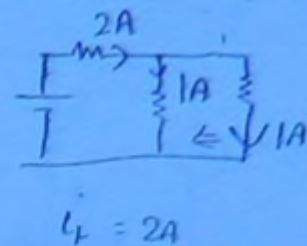 2A
1A
1A
= 2A